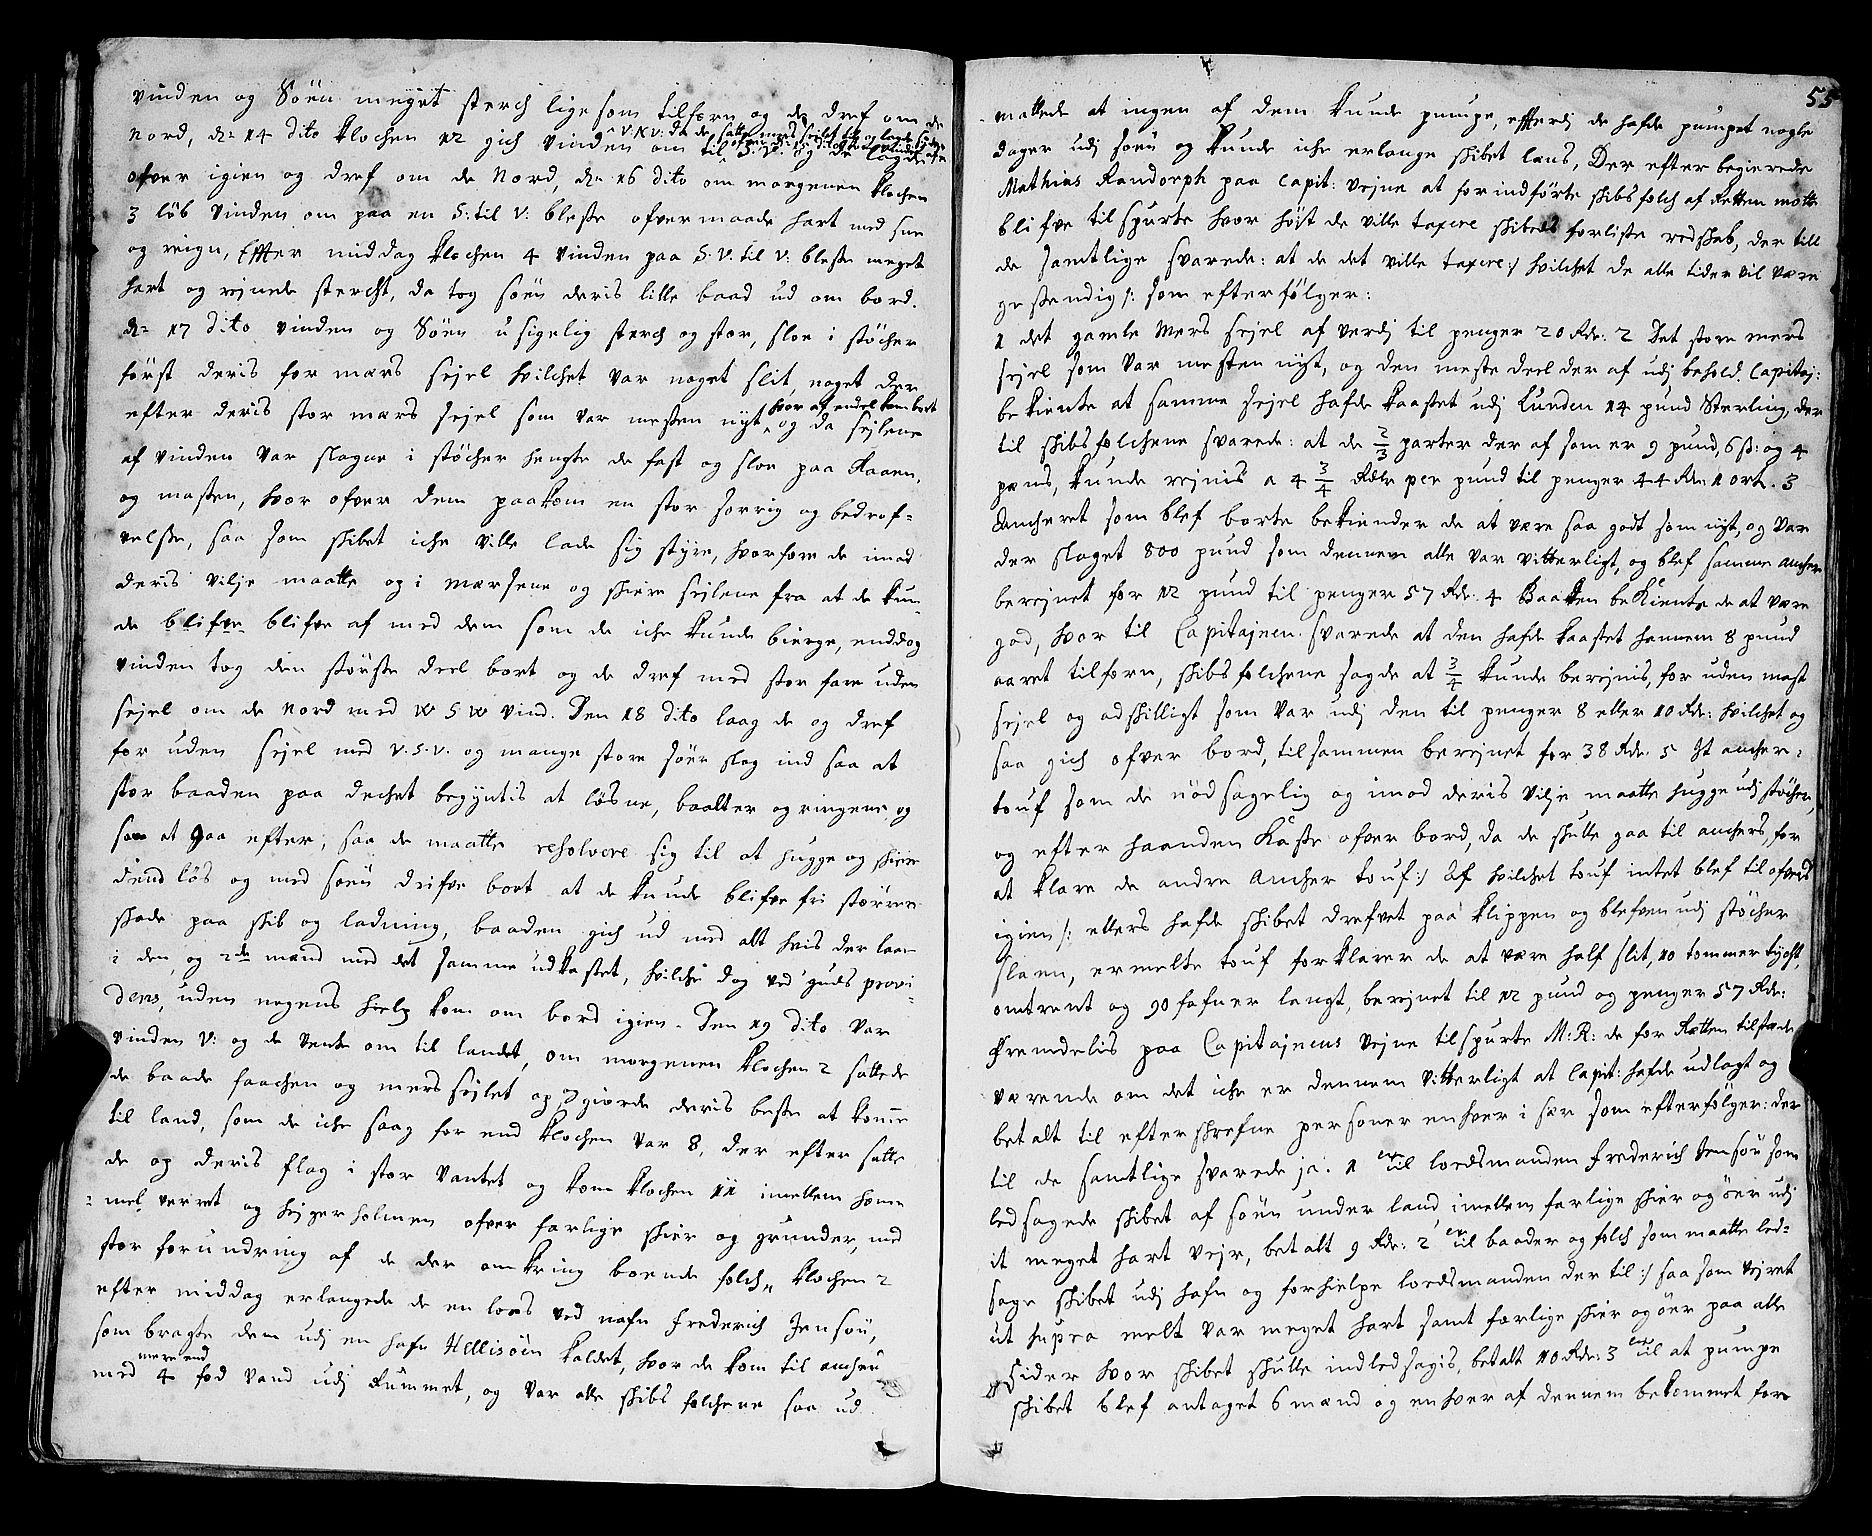 vinden og Söen meget sterch lige som tilforn og de dref om de
Nord, d: 14 dito klochen 12 gich vinden om til S.V. og de lagde
ofver igien og dref om de Nord, d: 16 dito om morgenen klochen
3 löb vinden om paa en S: til V: bleste ofvermaade hart med snee
og reign, Efter middag klochen 4 vinden paa S.V. til V: bleste meget
hart og rejnede stercht, da tog söen deris lille baad ud om bord.
d: 17 dito vinden og Söen usigelig sterch og stor, sloe i stöcher
först deris for mærs sejel hvilchet var noget slit, noget der
hvor af endel kom bort
efter deris stor mærs sejel som var mesten nyt, og da sejlene
af vinden var slagne i stöcher hengte de fast og sloe paa Raaen,
og masten, hvor ofver dem paakom en stor sorrig og bedröf-
velse, saa som skibet iche ville lade sig styre, hvorfore de imod
deris vilje maatte op i mærsene og skiere sejlene fra at de kun-
de blifve blifve af med dem som de iche kunde bierge, enddog
vinden tog den störste deel bort og de dref med stor fare uden
sejel om de Nord med W S W vind. Den 18 dito laag de og dref
for uden sejel med V.S.V. og mange store söer slog ind saa at
stor baaden paa dechet begyntis at lösne, baalter og ringene og
saa at gaa efter, saa de maatte resolvere sig til at hugge og skiere
dend lös og med söen drifve bort at de kunde blifve fri större
skade paa skib og ladning, baaden gich ud med alt hvis der laae
i den, og 2de mænd med det samme udkastet, hvilche dog ved guds provi-
dens, uden nogens hielp kom om bord igien. Den 19 dito var
vinden V: og de vente om til landet, om morgenen klochen 2 sattede
de baade faachen og mers sejlet op, og giorde deris beste at komme
til land, som de iche saag for end klochen var 8, der efter satte
de op deris flag i stor vantet og kom klochen 11 imellem home
mel verret og hejgerholmen ofver farlige skier og grunder, med
stor forundring af de der omkring boende folch, klochen 2
efter middag erlangede de en loes ved nafn Frederich Jensön,
som bragte dem udj en hafn Hellisöen kaldet, hvor de kom til ancher
mere end
med 4 fod vand udj Rummet, og var alle skibs folchene saa ud
55
mattede at ingen af dem kunde pumpe, efterdj de hafde pumpet nogle
dager udj söen og kunde iche erlange skibet læns, Der efter begierede
Mathias Randorph paa Capit: vejne at forindförte skibsfolch af Retten motte
blifve tilspurte hvor höjt de ville taxere skibets forliste redskab, der till
de samtlige svarede: at de det ville taxere :/ hvilchet de alle tider vil være
gestendig /: som efterfölger:
1 det gamle Mers sejel af verdj til penger 20 Rdr: 2 Det store mers
sejel som var mesten nyt, og den meste deel der af udj behold. Capitej:
bekiente at samme sejel hafde kaastet udj Lunden 14 pund Sterling, der
til skibsfolchene svarede: at de 2/3 parter der af som er 9 pund, 6 ß: og 4
pens, kunde rejnis a 4 3/4 Rdlr per pund til penger 44 Rdr 1 ort. 3
Ancheret som blef borte bekiender de at være saa godt som nyt, og var
der slaget 800 pund som dennem alle var vitterligt, og blef samme ancher
berejnet for 12 pund til penger 57 Rdr. 4 Baatten bekiente de at være
god, hvor til Capitajnen svarede at den hafde kaastet hannem 8 pund
aaret tilforn, skibsfolchene sagde at 3/4 kunde berejnis, for uden mast
sejel og adskilligt som var udj den til penger 8 eller 10 Rdr: hvilchet og
saa gich ofver bord, tilsammen berejnet for 38 Rdr. 5 It ancher-
touf som de nödsagelig og imod deris vilje maatte hugge udj stöcher,
og efter haanden kaste ofver bord, da de skulle gaa til anchers, for
at klare de andre Ancher touf :/ Af hvilchet touf intet blef til ofvers
igien /: ellers hafde skibet drefvet paa klippen og blefven udj stöcher
slaen, ermelte touf forklarer de at være half slit, 10 tommer tycht,
omtrent og 90 fafner langt, berejnet til 12 pund og penger 57 Rdr:
Fremdelis paa Capitajnens vejne tilspurte M: R: de for Retten tilstæde
værende om det iche er dennem vitterligt at Capit: hafde udlagt og
betalt til efterskrefne personer enhver i sær som efterfölger: der
til de samtlige svarede ja. 1 til loedsmanden Frederich Jensön som
ledsagede skibet af söen under land imellem farlige skier og öer udj
it meget hart vejr, betalt 9 Rdr: 2 til baader og folch som maatte led-
sage skibet udj hafn og forhielpe loedsmanden der til :/ saa som vejret
ut supra melt var meget hart samt farlige skier og öer paa alle
sider hvor skibet skulle indledsagis, betalt 10 Rdr: 3 til at pumpe
skibet blef antaget 6 mænd og enhver af dennem bekommet for